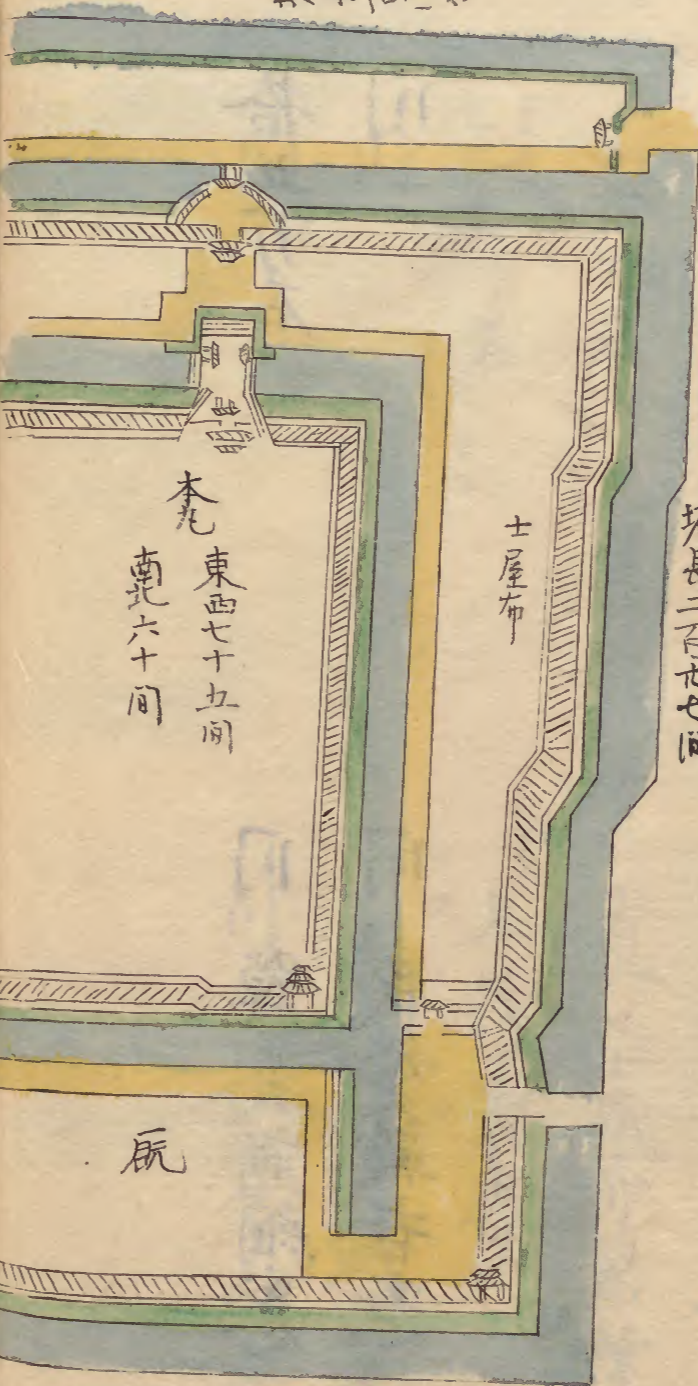 堀長二百廿七間
士屋布
本丸
東西七十五間
南北六十間
厩